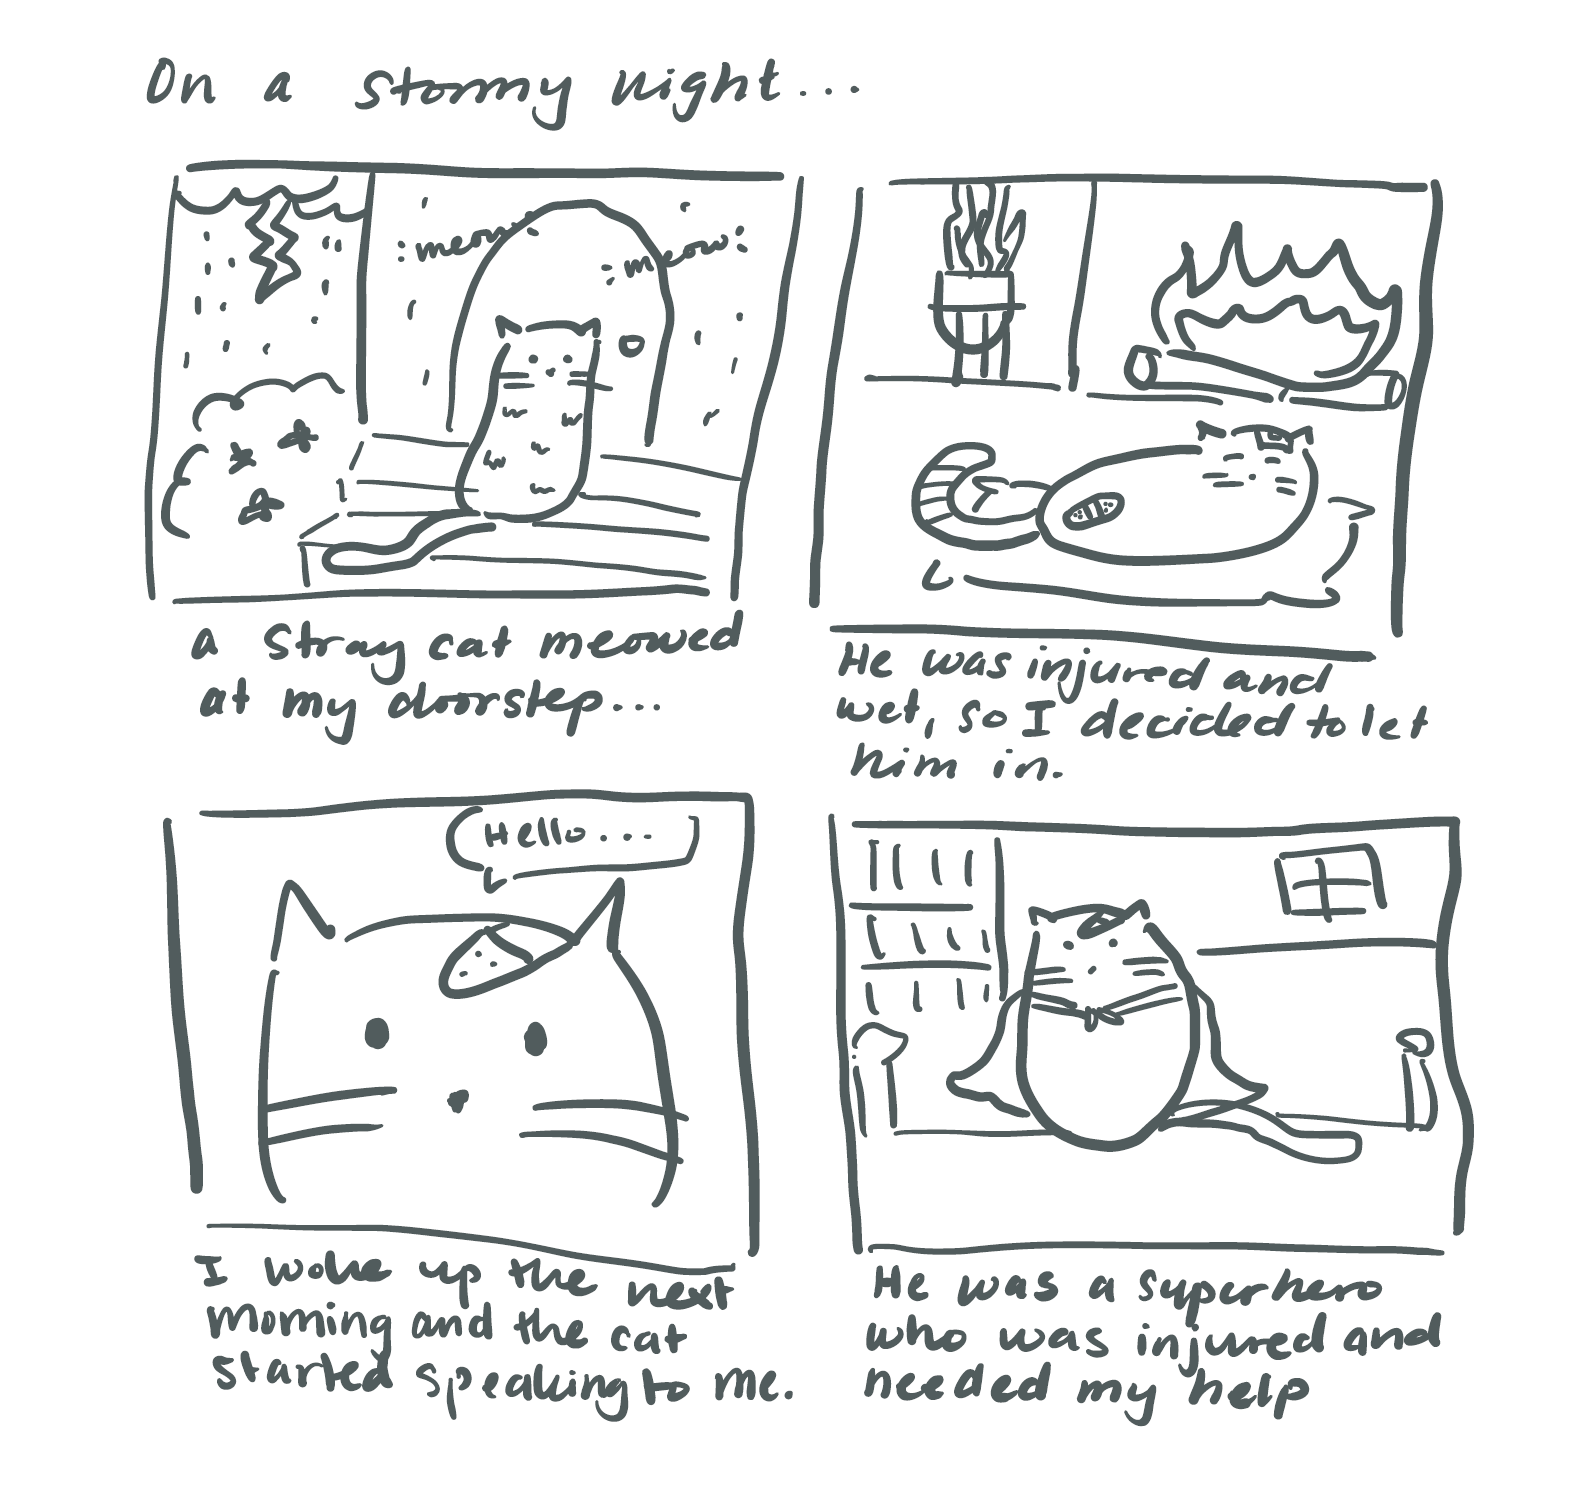 On a stormy night...
:meow:
:meow:
a stray cat meowed
at my doorstep...
He was injured and
wet, so I decided to let
him in.
Hello...
I woke up the next
morning and the cat
started speaking to me.
He was a superhero
who was injured and
needed my help